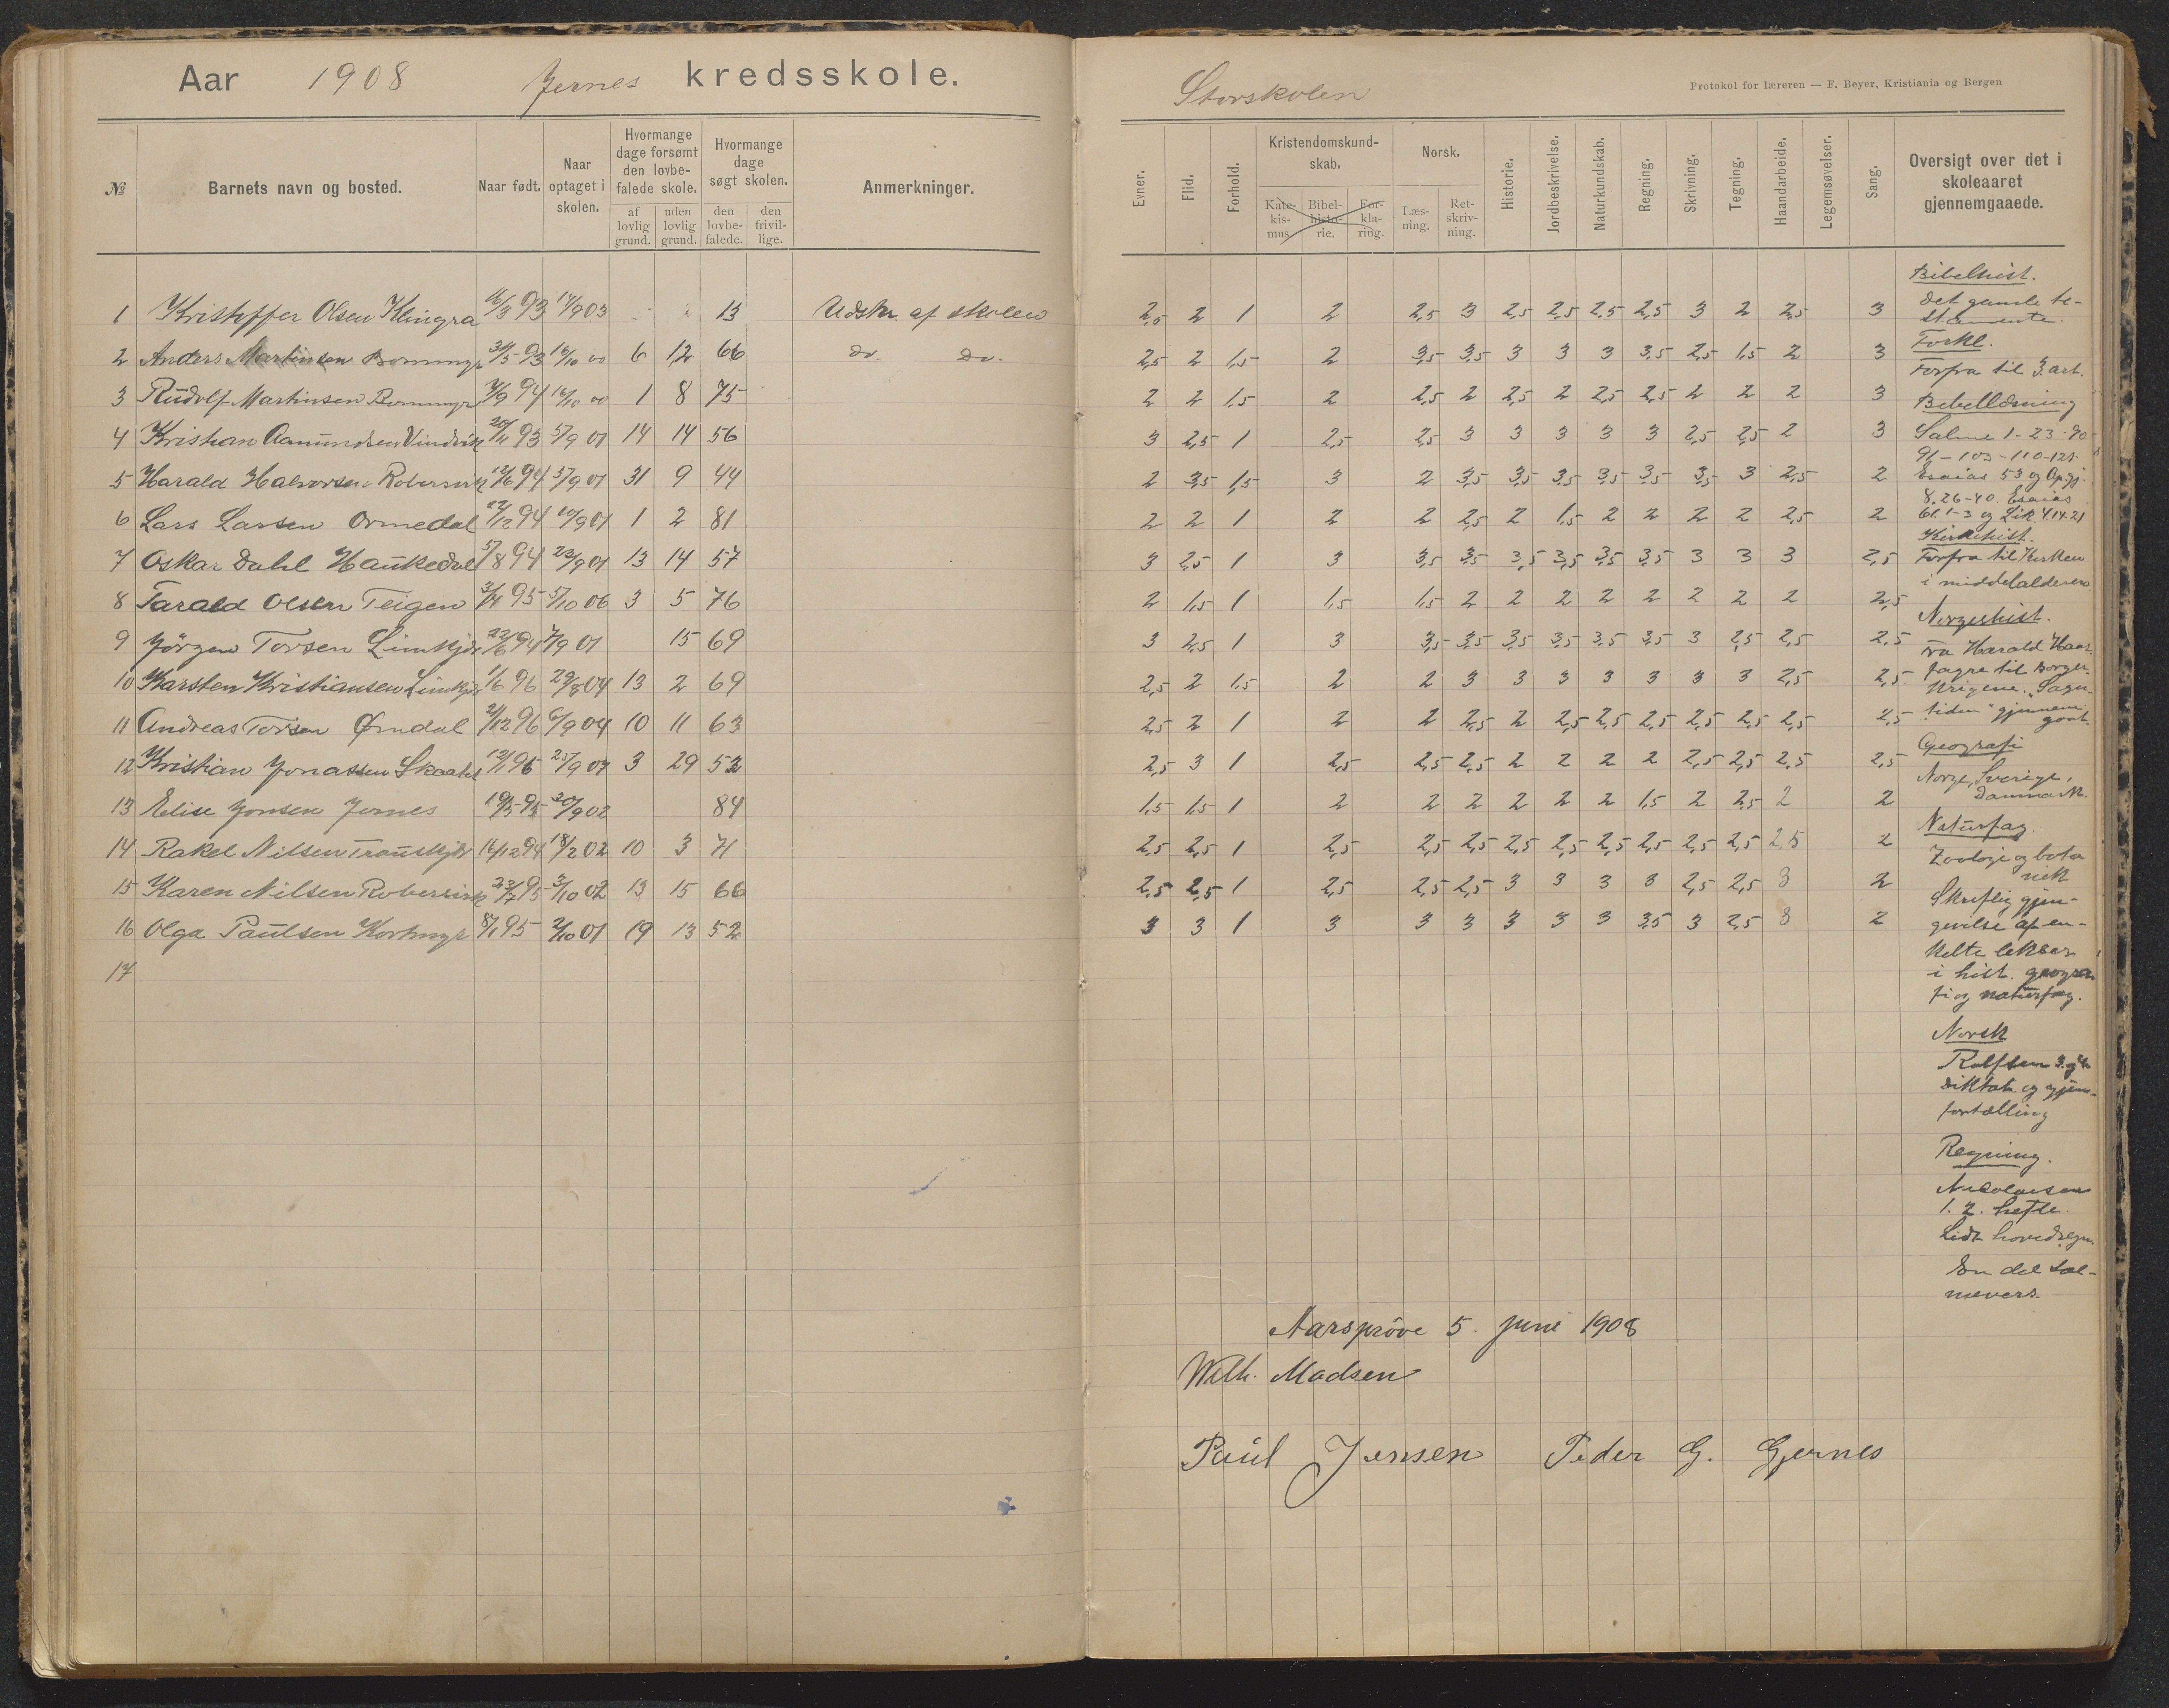 Aar 1908 Jernes kredsskole.
№
Barnets navn og bosted.
Naar født.
Naar optaget i skolen.
Hvormange dage forsømt den lovbefalede skole.
af lovlig grund.
uden lovlig grund.
Hvormange dage søgt skolen.
den lovbefalede.
den frivillige.
Anmerkninger.
1 Kristoffer Olsen Klingra 16/3 93 14/9 03 13 Udskr. af skolen
2 Anders Martinsen 31/5 93 16/10 00 6 12 66 Do. Do.
3 Rudolf Martinsen 94 16/10 00 1 8 75
4 Kristian Aamundsen 20/11 93 5/9 01 14 14 56
5 Harald Halvorsen Robersvik 12/6 94 5/9 01 31 9 44
6 Lars Larsen Ormedal 22/12 94 20/9 01 1 2 81
7 Oskar Dahl Haukedal 5/8 94 23/9 01 13 14 57
8 Tarald Olsen Teigen 3/4 95 5/10 06 3 5 76
9 Jörgen Torsen Limkjær 22/6 94 7/9 01 15 69
10 Karsten Kristiansen Limkjær 1/6 96 29/8 04 13 2 69
11 Andreas Torsen Ørndal 21/12 96 6/9 04 10 11 63
12 Kristian Jonassen 12/1 96 25/9 03 29 52
13 Elise Jonsen Jernes 19/5 95 20/9 02 84
14 Rakel Nilsen 16/12 94 18/2 02 10 3 71
15 Karen Nilsen Robersvik 23/7 95 3/10 02 13 15 66
16 Olga Paulsen Kortmyr 8/1 95 2/10 01 19 13 52
17
Storskolen
Protokol for læreren — F. Beyer, Kristiania og Bergen
Evner.
Flid.
Forhold.
Kristendomskund-
skab.
Kate-kis-mus.
Bibel-histo-rie.
For-kla-ring.
Norsk.
Læs-ning.
Ret-skriv-ning.
Historie.
Jordbeskrivelse.
Naturkundskab.
Regning.
Skrivning.
Tegning.
Haandarbeide.
Legemsøvelser.
Sang.
Oversigt over det i
skoleaaret
gjennemgaaede.
2,5 2 1 2 2,5 3 2,5 2,5 2,5 2,5 3 2 2,5 3
2,5 2 1,5 2 3,5 3,5 3 3 3 3,5 2,5 1,5 2 3
2 2 1,5 2 2,5 2 2,5 2 2,5 2,5 2 2 2 3
3 2,5 1 2,5 2,5 3 3 3 3 3 2,5 2,5 2 3
2 3,5 1,5 3 2 3,5 3,5 3,5 3,5 3,5 3,5 3 2,5 2
2 2 1 2 2 2,5 2 1,5 2 2 2 2 2,5 2
3 2,5 1 3 3,5 3,5 3,5 3,5 3,5 3,5 3 3 3 2,5
2 1,5 1 1,5 1,5 2 2 2 2 2 2 2 2 2,5
3 2,5 1 3 3,5 3,5 3,5 3,5 3,5 3,5 3 2,5 2,5 2,5
2,5 2 1,5 2 2 3 3 3 3 3 3 3 2,5 2,5
2,5 2 1 2 2 2,5 2 2,5 2,5 2,5 2,5 2,5 2,5 2,5
2,5 3 1 2,5 2,5 2,5 2 2 2 2 2,5 2,5 2,5 2,5
1,5 1,5 1 2 2 2 2 2 2 1,5 2 2,5 2 2
2,5 2,5 1 2,5 2,5 2,5 2,5 2,5 2,5 2,5 2,5 2,5 2,5 2
2,5 2,5 1 2,5 2,5 2,5 3 3 3 3 2,5 2,5 3 2
3 3 1 3 3 3 3 3 3 3,5 3 2,5 3 2
Bibelhist.
Det gamle te-
stamente.
Forkl.
Forfra til 3. art.
Bibellæsning
Salme 1-23-90-
91-103-110-121.
Esaias 53 og Ap.gj.
8,26-40. Esaias
61.1-3 og Luk. 4.14-21
Kirkehist.
Forfra til Kirken
i middelalderen
Norgeshist.
Fra Harald Haar-
fagre til Borger-
krigene. "Sagn-
tiden" gjennem-
gaat.
Geografi
Norge, Sverige,
Danmark.
Naturfag.
Zoologi og bota
nik
Skriftlig gjen-
givelse af en-
kelte lekser
i hist. geogra-
fi og naturfag.
Norsk
Rolfsen 3. og 4.
Diktat og gjen-
fortælling
Regning.
Nicolaisen
1. 2. hefte.
Lidt hovedregn.
En del sal-
mevers.
Aarsprøve 5. juni 1908
Wilh. Madsen
Paul Jensen Peder G. Gjernes